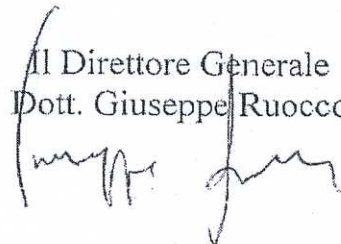 Il Direttore Generale
Dott. Giuseppe Ruocco